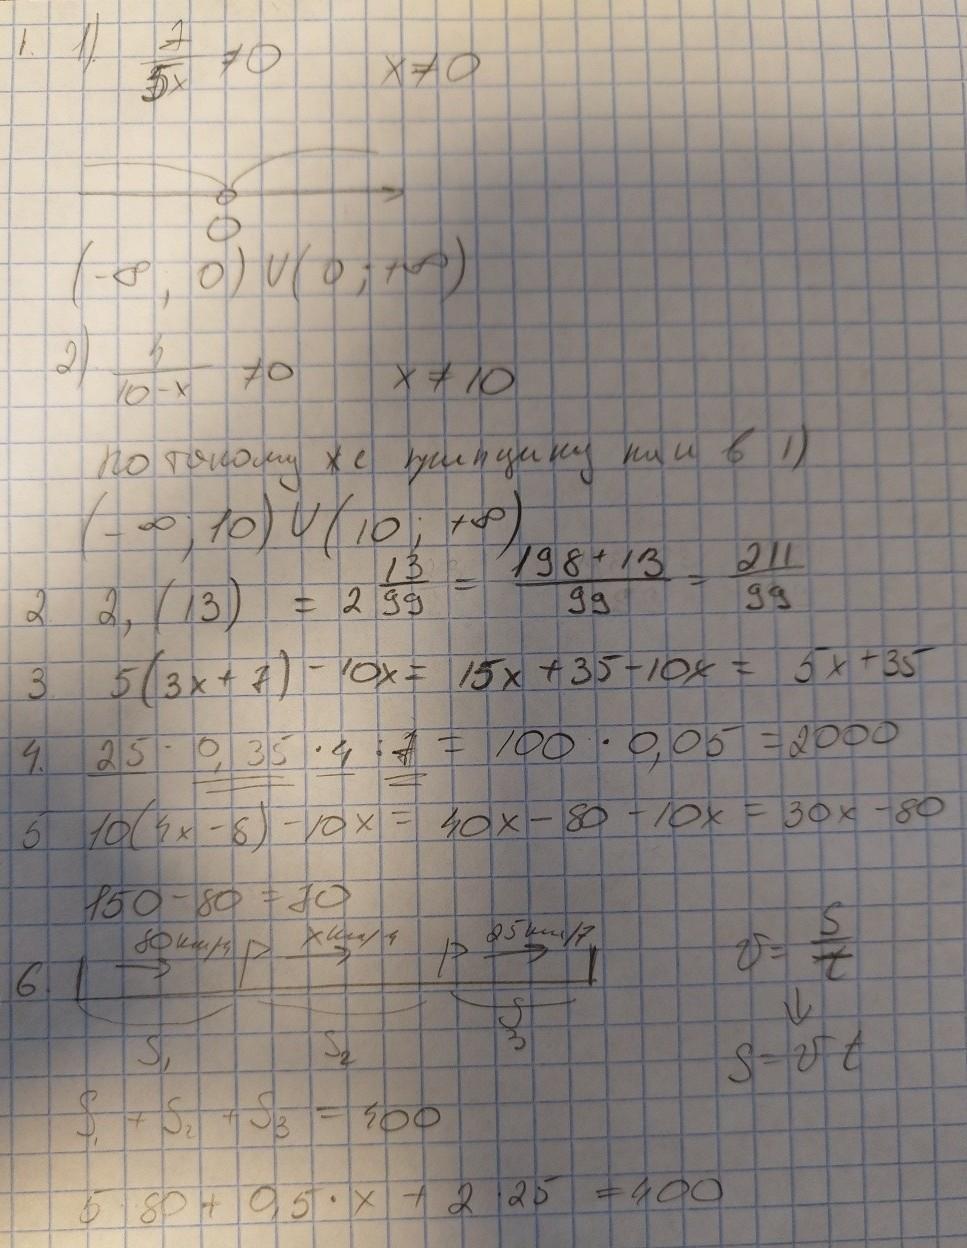 1. 1) 7/5x ≠0 x≠0
0
(-∞; 0)∪(0;+∞)
2) 4/10-x ≠0 x≠10
по такому же принципу как и в 1)
(-∞; 10)∪(10; +∞)
2 2,(13) = 2 13/99 = 198+13/99 = 211/99
3 5(3x+7)-10x= 15x+35-10x= 5x+35
4. 25·0,35·4:7= 100·0,05=2000
5 10(4x-8)-10x= 40x-80-10x=30x-80
150-80=70
80км/ч P xкм/ч P 25км/ч v=S/t
6. S₁ S₂ S₃ S=vt
S₁+S₂+S₃=400
5·80+0,5·x+2·25=400